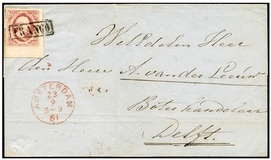 FRANCO
Weledelen Heer
den Heere A. van der Leeuw
Boterhandelaar
Delft.
AMSTERDAM
23
9
61